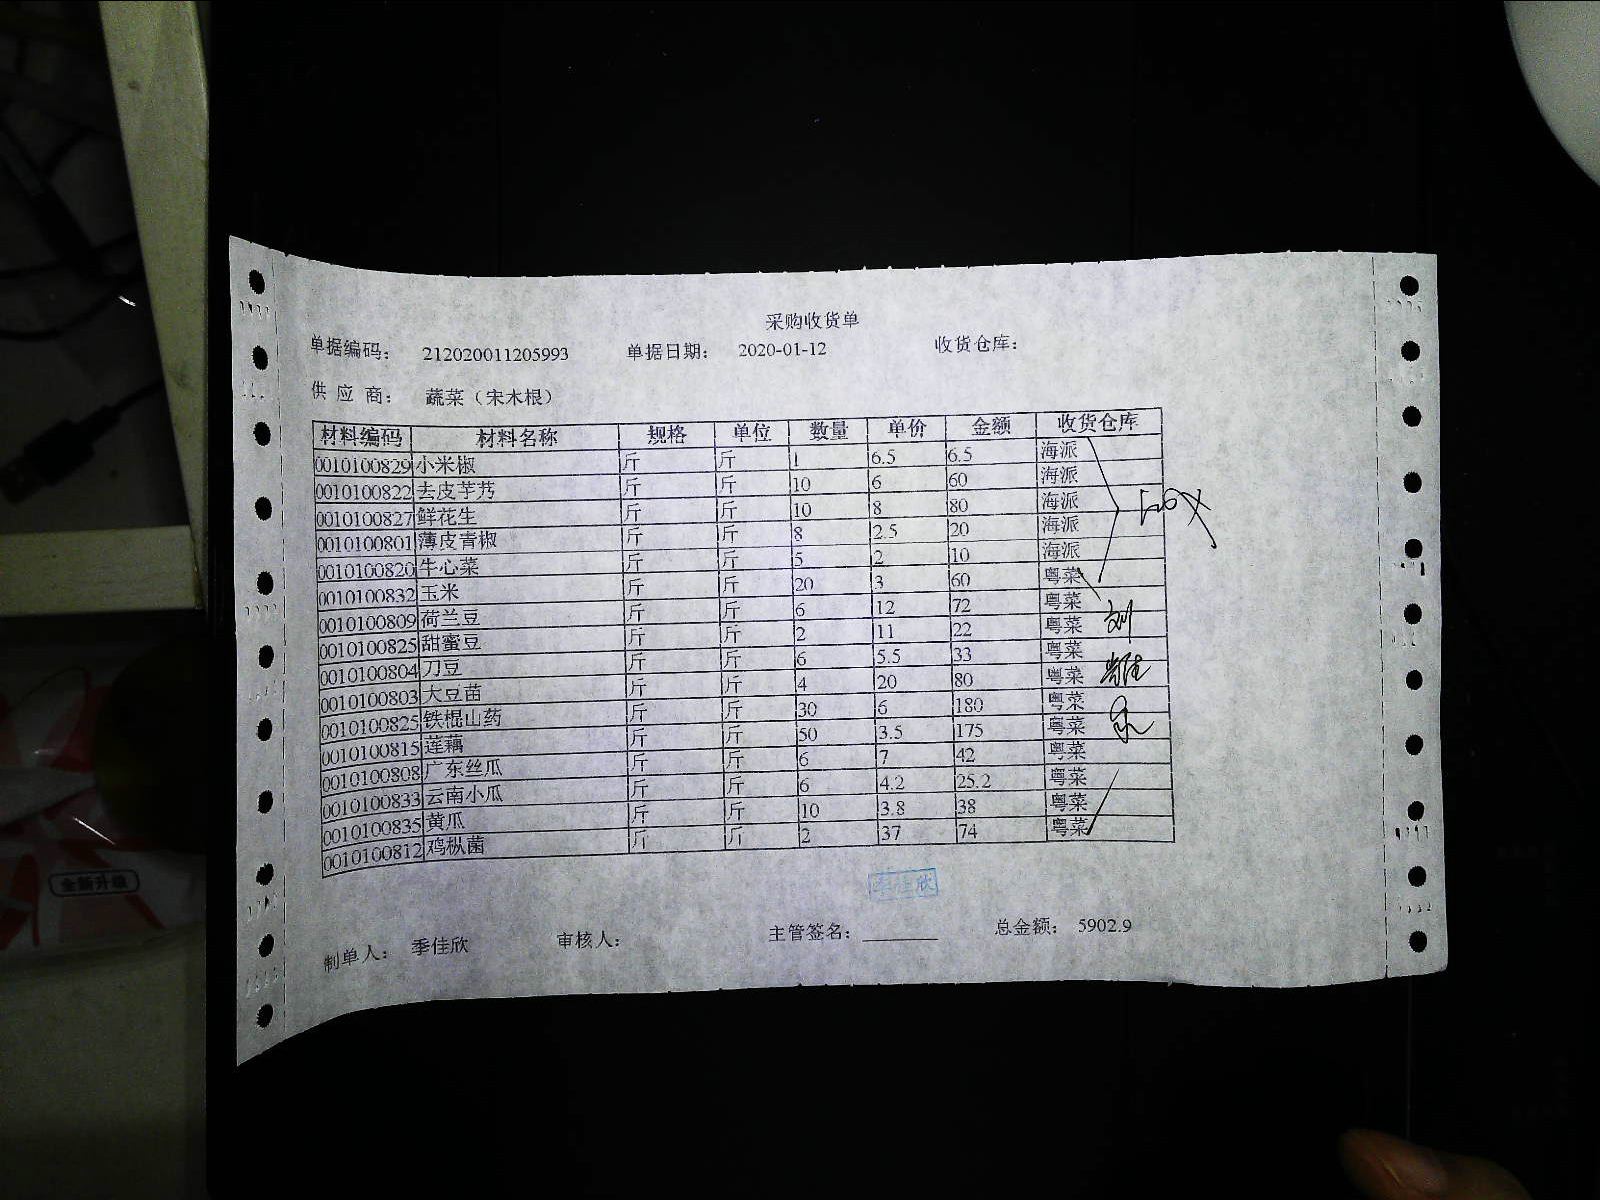 采购收货单
单据编码： 212020011205993 单据日期： 2020-01-12 收货仓库：
供 应 商： 蔬菜（宋木根）
材料编码 材料名称 规格 单位 数量 单价 金额 收货仓库
0010100829 小米椒 斤 斤 1 6.5 6.5 海派
0010100822 去皮芋艿 斤 斤 10 6 60 海派
0010100827 鲜花生 斤 斤 10 8 80 海派
0010100801 薄皮青椒 斤 斤 8 2.5 20 海派
0010100820 牛心菜 斤 斤 5 2 10 海派
0010100832 玉米 斤 斤 20 3 60 粤菜
0010100809 荷兰豆 斤 斤 6 12 72 粤菜
0010100825 甜蜜豆 斤 斤 2 11 22 粤菜
0010100804 刀豆 斤 斤 6 5.5 33 粤菜
0010100803 大豆苗 斤 斤 4 20 80 粤菜
0010100825 铁棍山药 斤 斤 30 6 180 粤菜
0010100815 莲藕 斤 斤 50 3.5 175 粤菜
0010100808 广东丝瓜 斤 斤 6 7 42 粤菜
0010100833 云南小瓜 斤 斤 6 4.2 25.2 粤菜
0010100835 黄瓜 斤 斤 10 3.8 38 粤菜
0010100812 鸡枞菌 斤 斤 2 37 74 粤菜
季佳欣
制单人： 季佳欣 审核人： 主管签名： 总金额： 5902.9
全新升级